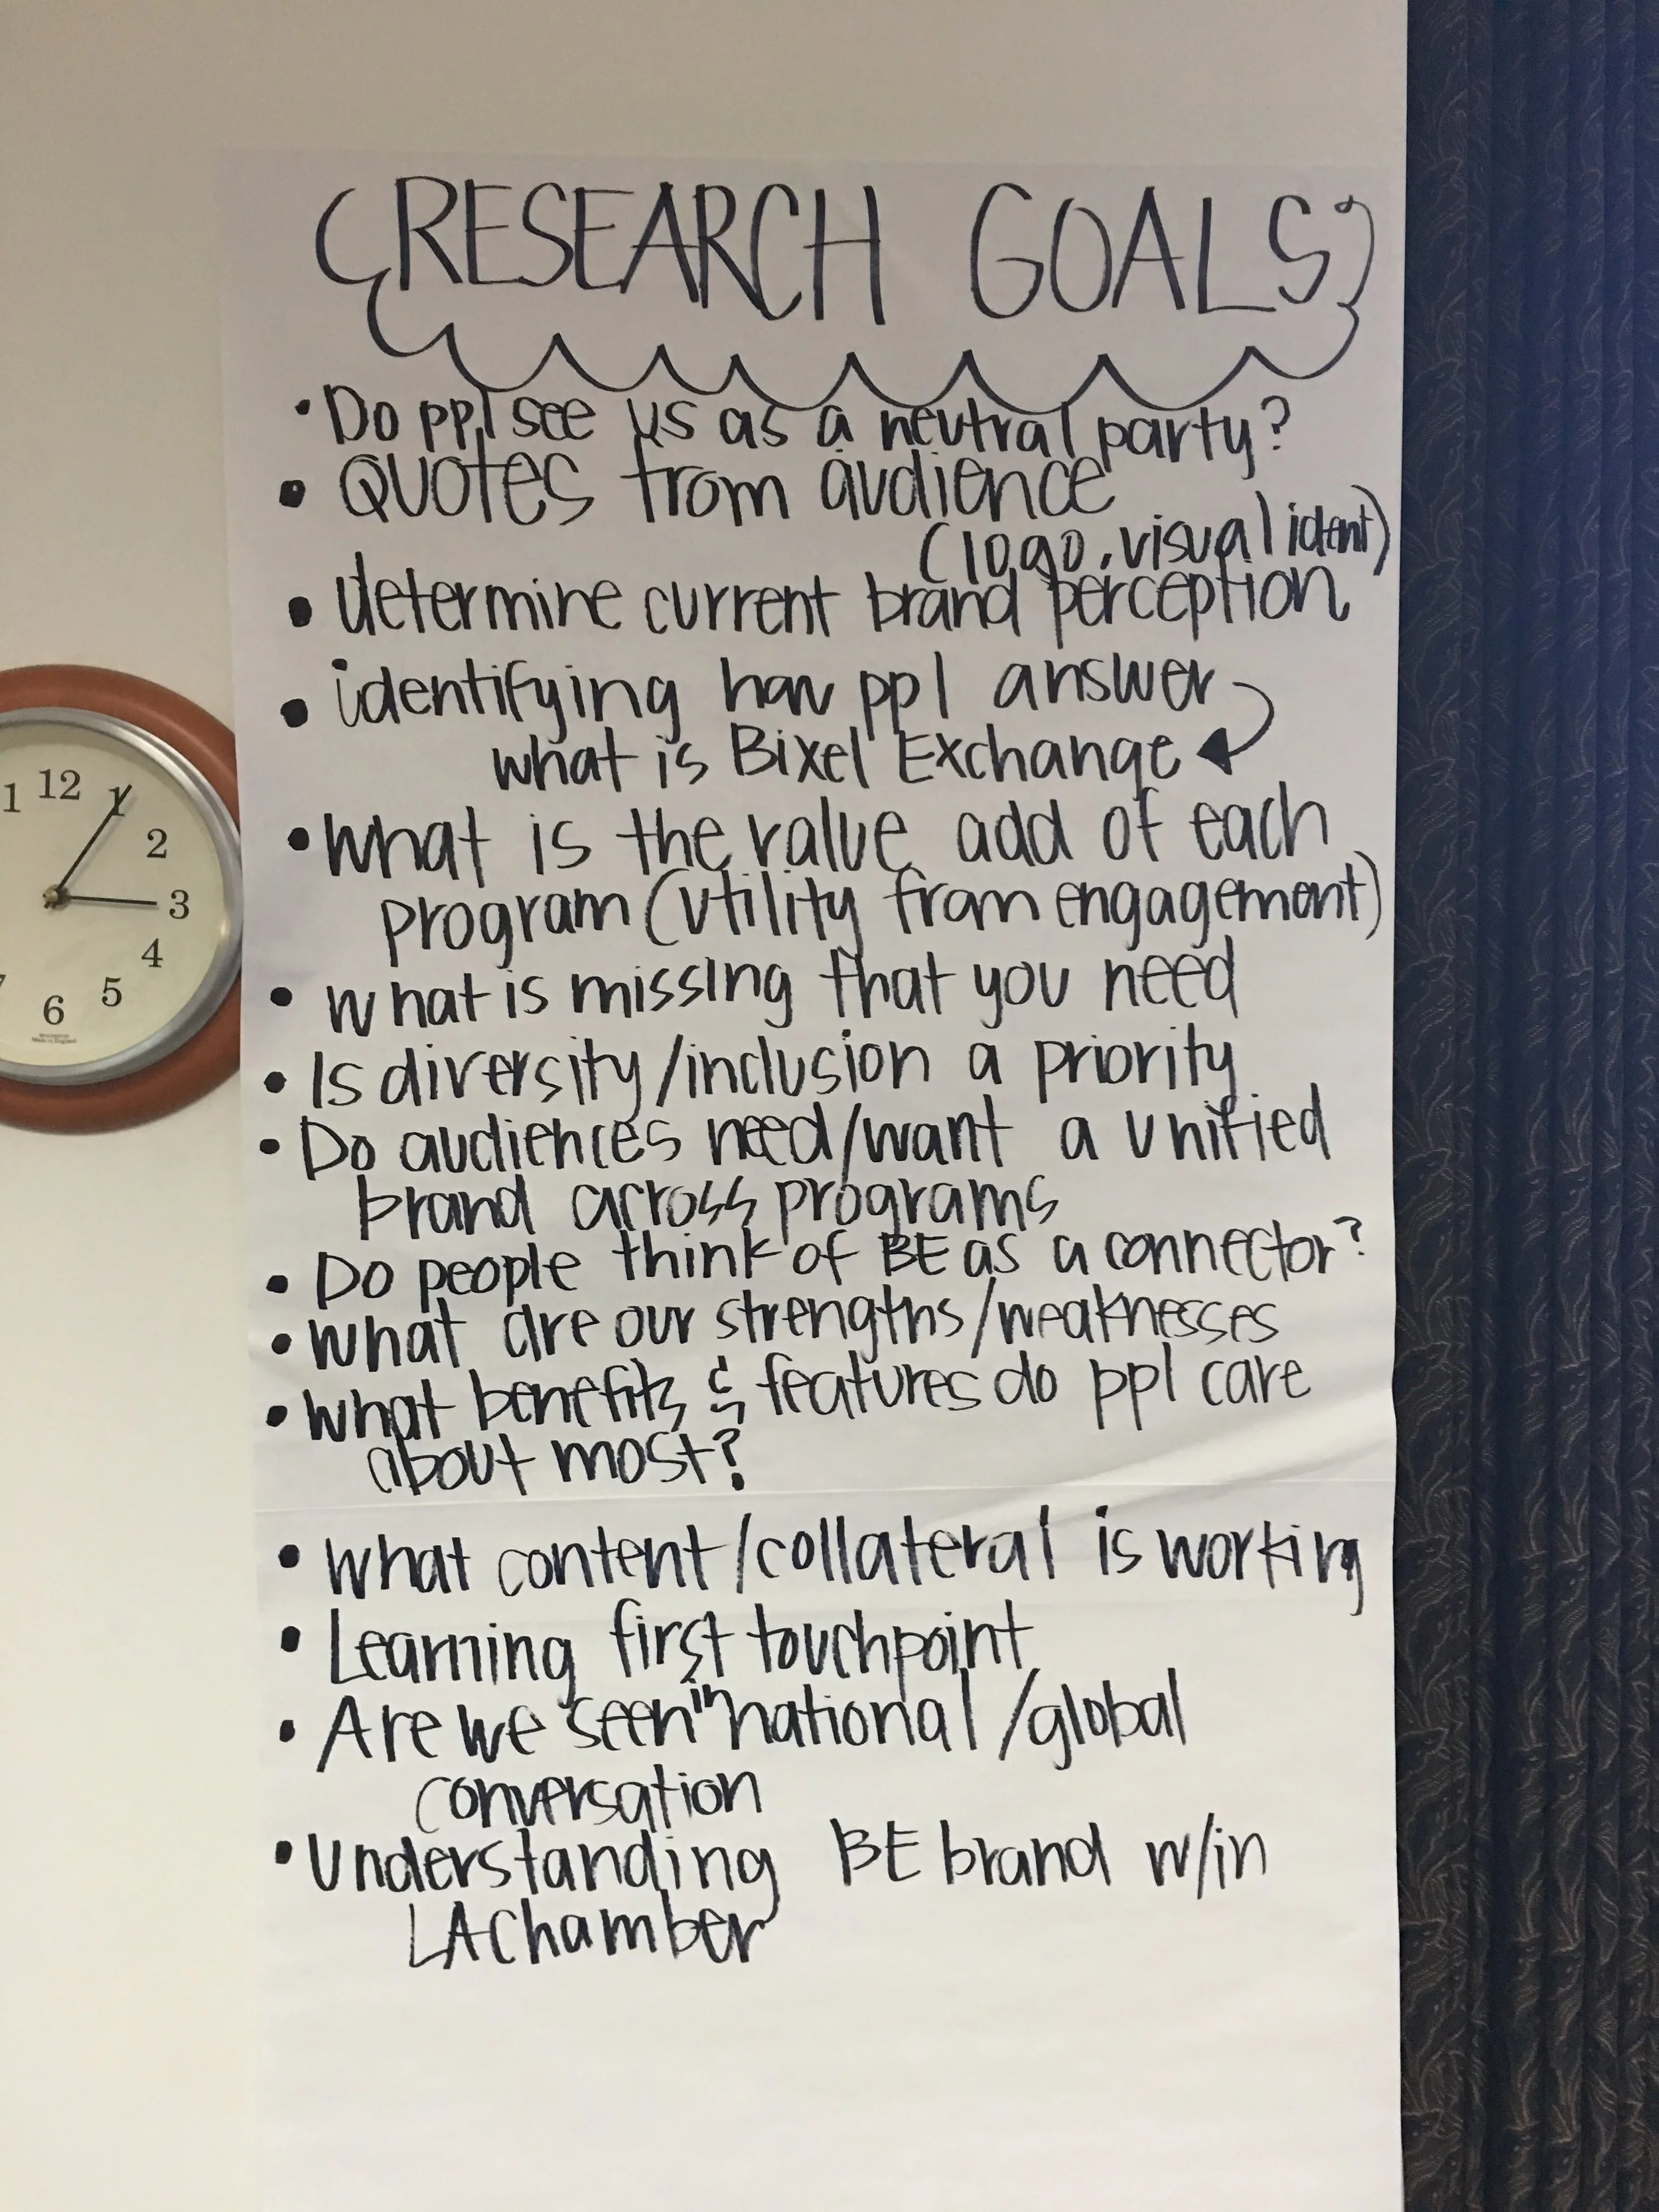 RESEARCH GOALS
• Do ppl see us as a neutral party?
• Quotes from audience
(logo, visual ident)
• determine current brand perception
• identifying how ppl answer
what is Bixel Exchange
• What is the value add of each
program (utility from engagement)
• What is missing that you need
• Is diversity/inclusion a priority
• Do audiences need/want a unified
brand across programs
• Do people think of BE as a connector?
• What are our strengths/weaknesses
• What benefits & features do ppl care
about most?
• What content/collateral is working
• Learning first touchpoint
• Are we seen in national/global
conversation
• Understanding BE brand w/in
LA Chamber
12
1
1
2
3
4
5
6